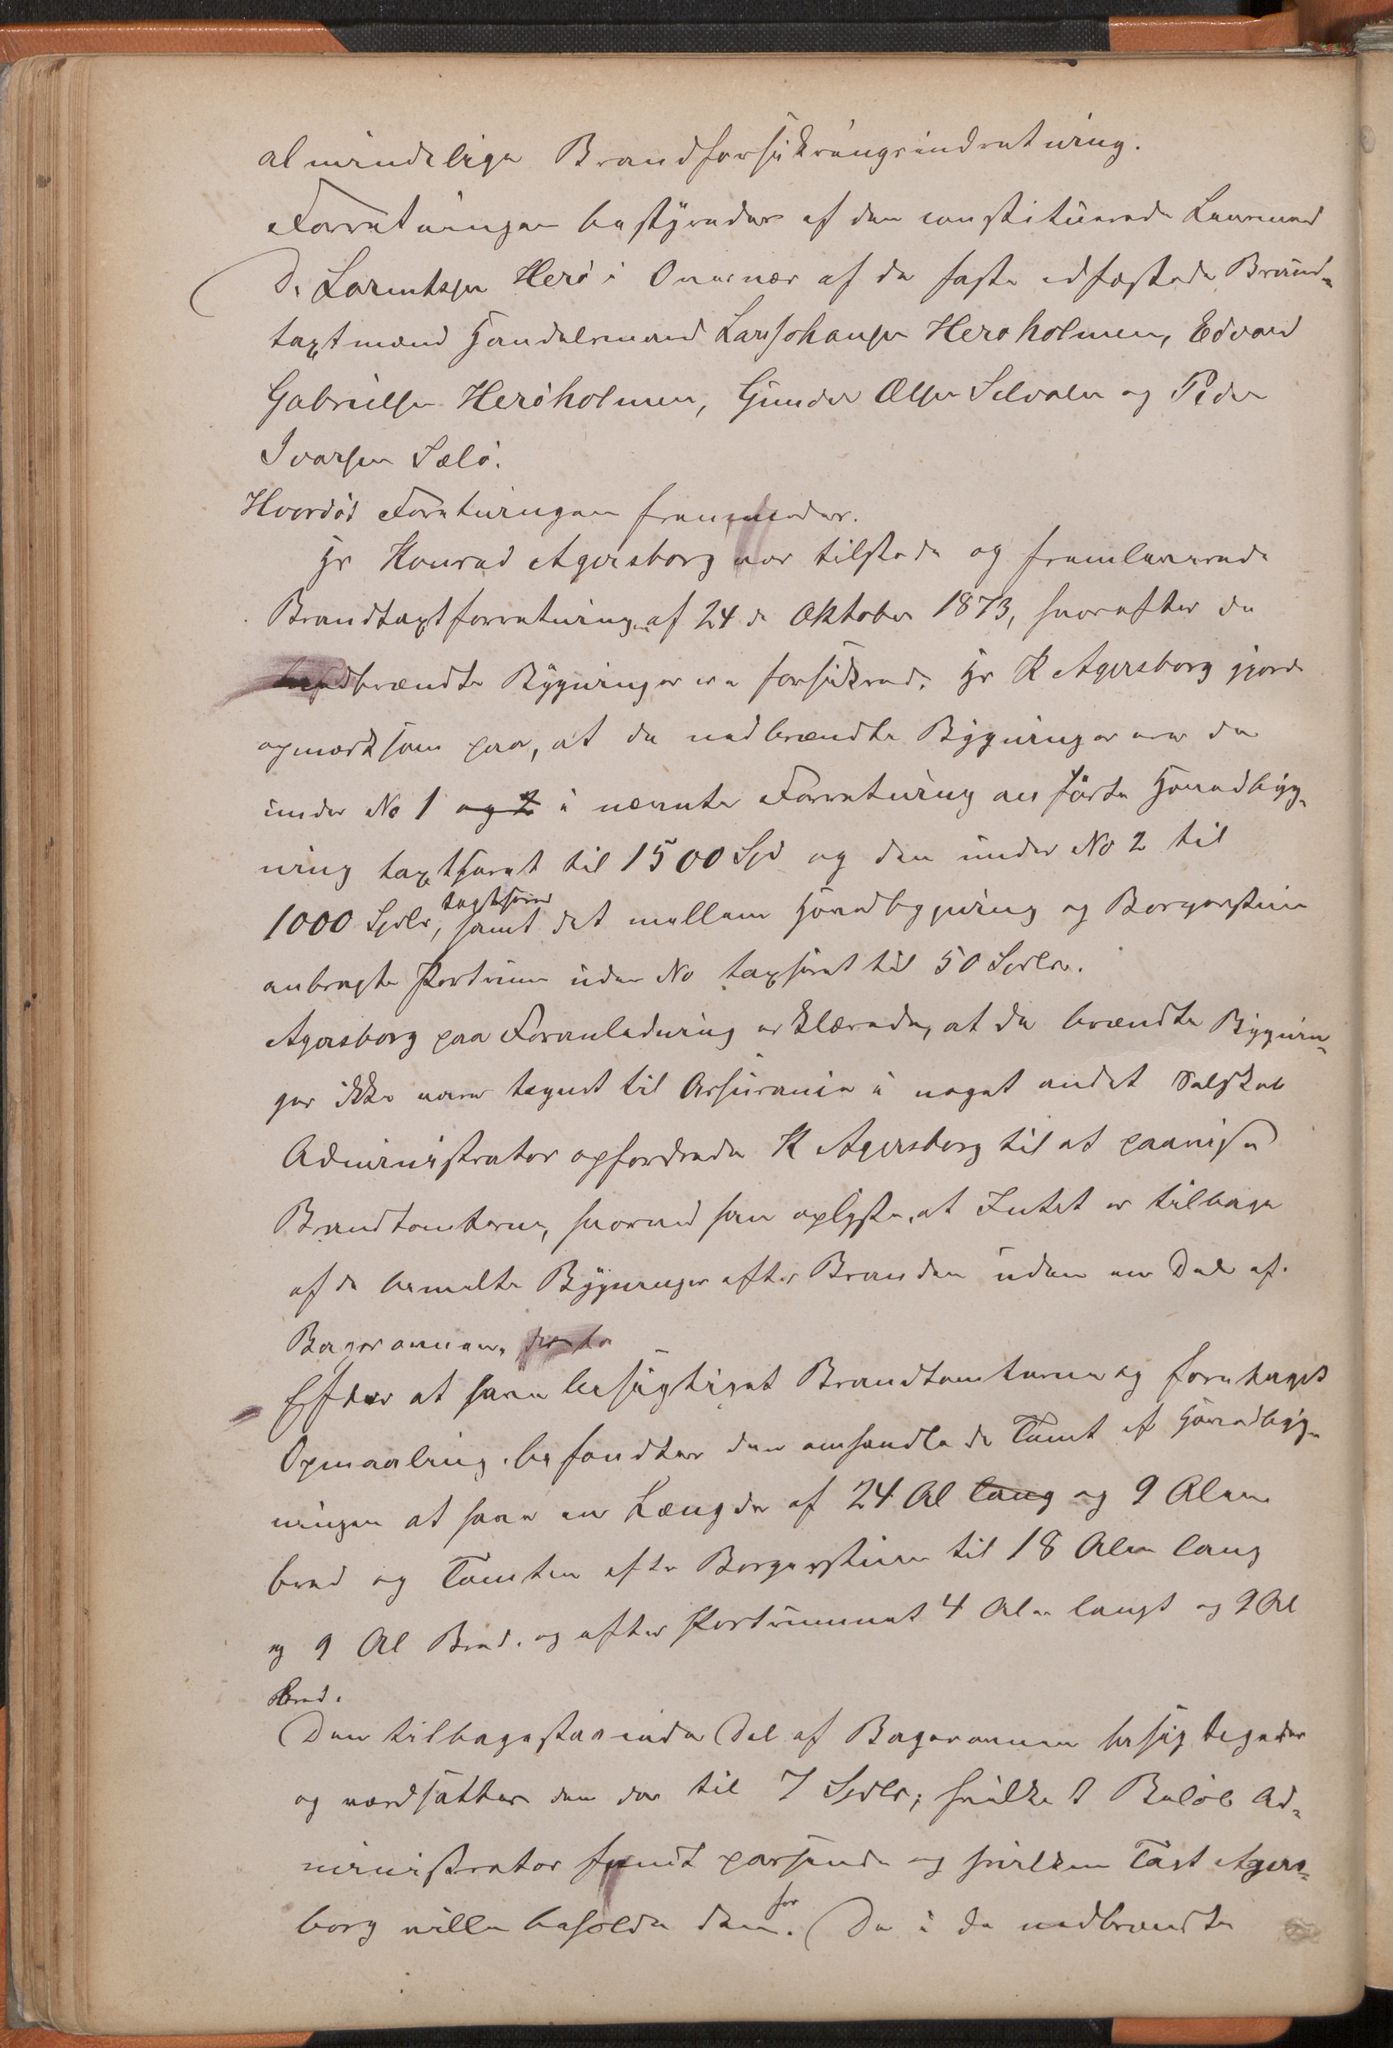 almindelige Brandforsikringsindretning.
Forretningen bestyredes af den constituerede Lensmand
D. Lorentsen Herø i Overvær af de faste edfæstede Brand-
taxtmænd Handelsmand Lars Johansen Herøholmen, Edvard
Gabrielsen Herøholmen, Gunder Olsen Selvaler og Peder
Ivarsen Sælø.
Hvorda Forretningen fremmedes.
Hr Konrad Agersborg var tilstede og fremleverede
Brandtaxtforretning af 24de Oktober 1873, hvorefter de
nedbrændte Bygninger er forsikrede. Hr K Agersborg gjorde
opmærksom paa, at de nedbrændte Bygninger var den
under No 1 og 2 i nævnte Forretning anførte Hovedbyg-
ning taxtseret til 1500 Spd og den under No 2 til
1000 Spdlr, taxtserede samt det mellem Hovedbygning og Borgerstuen
anbragte Portrum uden No taxseret til 50 Spdlr.
Agersborg paa Foranledning erklærede, at de brændte Bygnin-
ger ikke vare tegnet til Assurance i noget andet Selskab
Administrator opfordrede K Agersborg til at paavise
Brandtomterne, hvorved han oplyste, at Intet er tilbage
af de bemeldte Bygninger efter Branden uden en Del af
Bagerovnen.
Efter at have besigtiget Brandtomterne og foretaget
Opmaaling befandtes den omhandlede Tomt af Hovedbyg-
ningen at have en Længde af 24 Al lang og 9 Alen
bred og Tomten efter Borgerstuen til 18 Alen lang
og 9 Al Bred. og efter Portrummet 4 Alen langt og 9 Al
Bred.
Den tilbagestaaende Del af Bagerovnen besigtigedes
og værdsattes den der til 7 Spdlr; hvilket Beløb Ad-
ministrator fandt passende og hvilken Taxt Agers-
borg ville beholde den for. Da i de nedbrændte